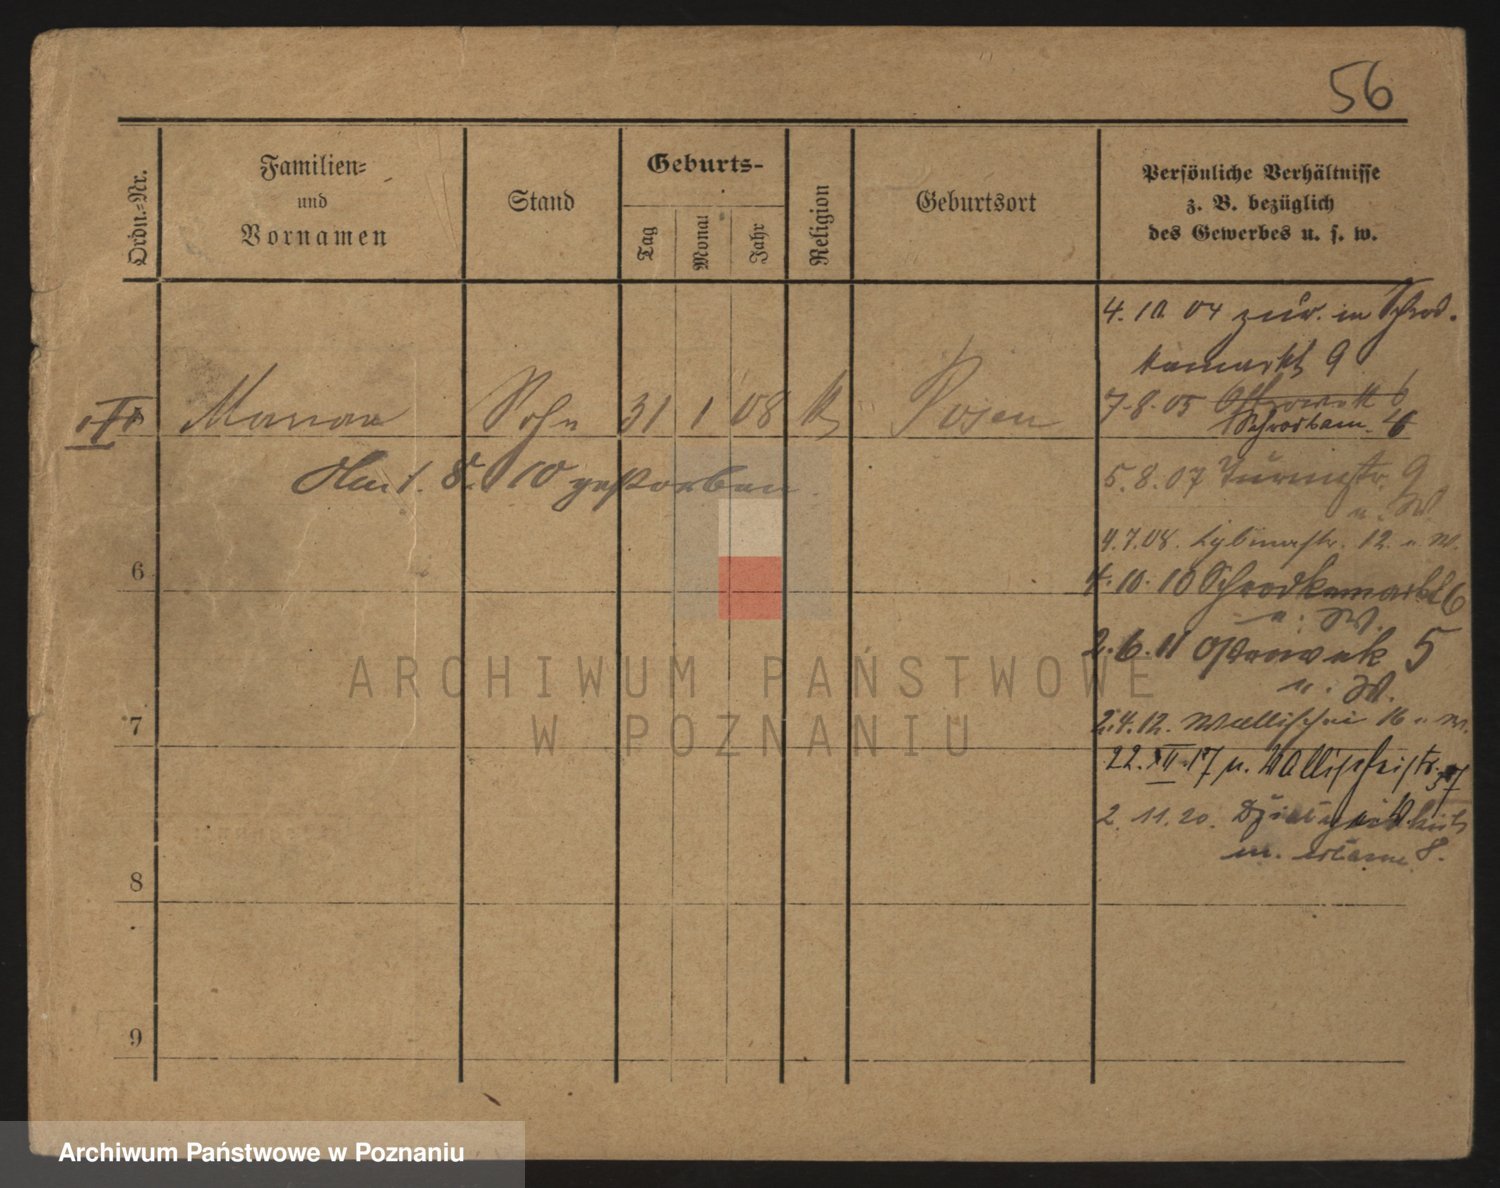 56
Ordn.-Nr.
Familien-
und
Vornamen
Stand
Geburts-
Tag
Monat
Jahr
Religion
Geburtsort
Persönliche Verhältnisse
z. B. bezüglich
des Gewerbes u. s. w.
Marian Sohn 31 1 08 k Posen
Am 1. 8. 10 gestorben.
6
7
8
9
4. 10 04 zur. in Schrod-
kamarkt 9
7.8.05 Ostrowek 6
Schrodkam. 6
5.8.07 Turmstr. 9
u. W.
4.7.08. 12 u. W.
4.10.10 Schrodkamarkt 6
u. W.
2.6.11 Ostrowek 5
u. W.
2.4.12. Wallischei 16 u. W.
22.XII.17 u. Wallischeistr. 37
2.11.20.
8.
ARCHIWUM PAŃSTWOWE
W POZNANIU
Archiwum Państwowe w Poznaniu